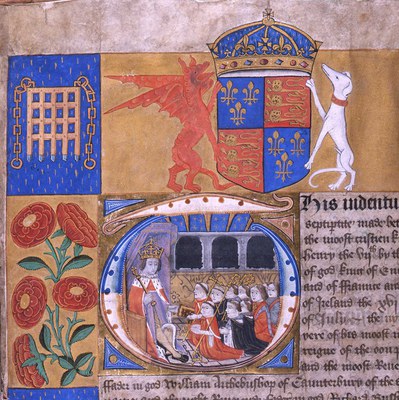 This indentu
septiptite made betw
the moost cristien k
henry the vijth by th
of god king of En
and of ffraunce and
of Ireland the xvj
of Julie the
yere of his moost n
reigne of the conq
and the moost Reue
ffader in god William Archebisshop of Caunterbury of the
Richard